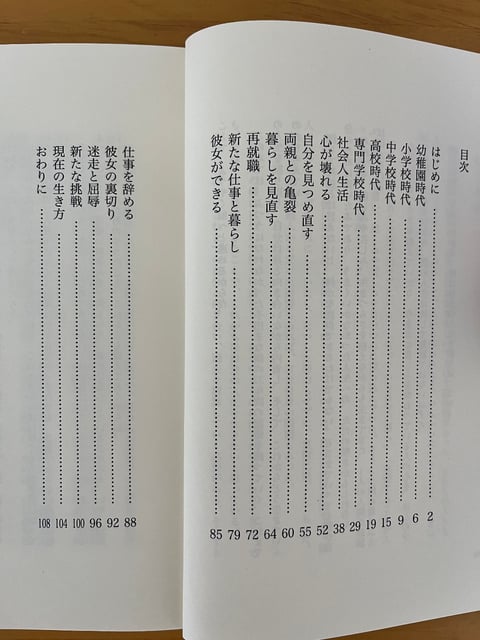 目次
はじめに……2
幼稚園時代……6
小学校時代……9
中学校時代……15
高校時代……19
専門学校時代……29
社会人生活……38
心が壊れる……52
自分を見つめ直す……55
両親との亀裂……60
暮らしを見直す……64
再就職……72
新たな仕事と暮らし……79
彼女ができる……85
仕事を辞める……88
彼女の裏切り……92
迷走と屈辱……96
新たな挑戦……100
現在の生き方……104
おわりに……108